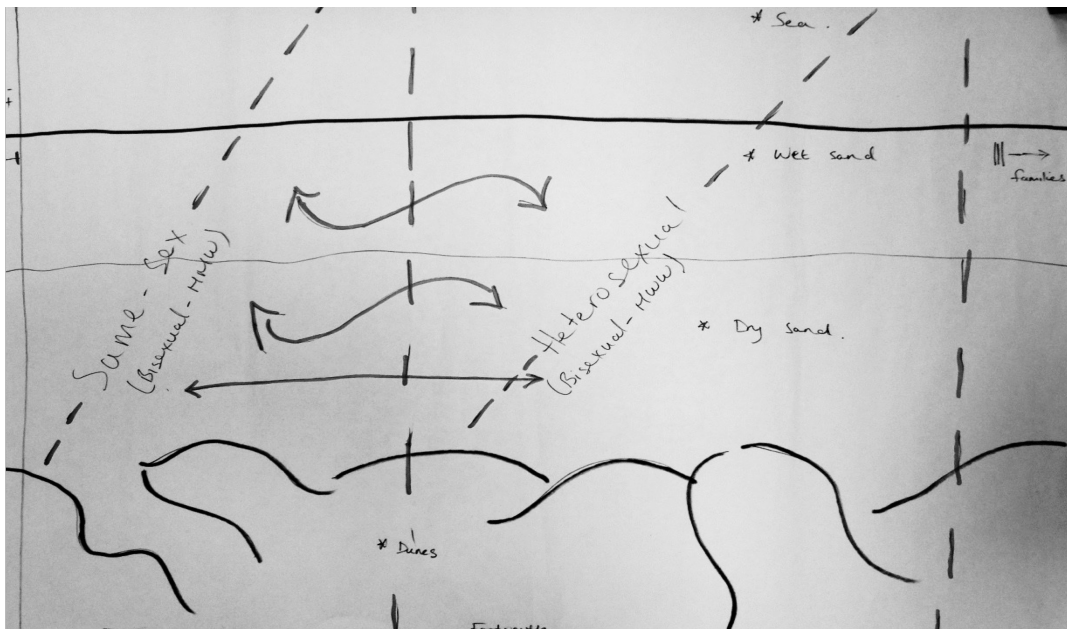 * Sea.
* Wet sand
families
Same - Sex
(Bisexual - MMW)
Heterosexual
(Bisexual - MWW)
* Dry sand.
* Dunes